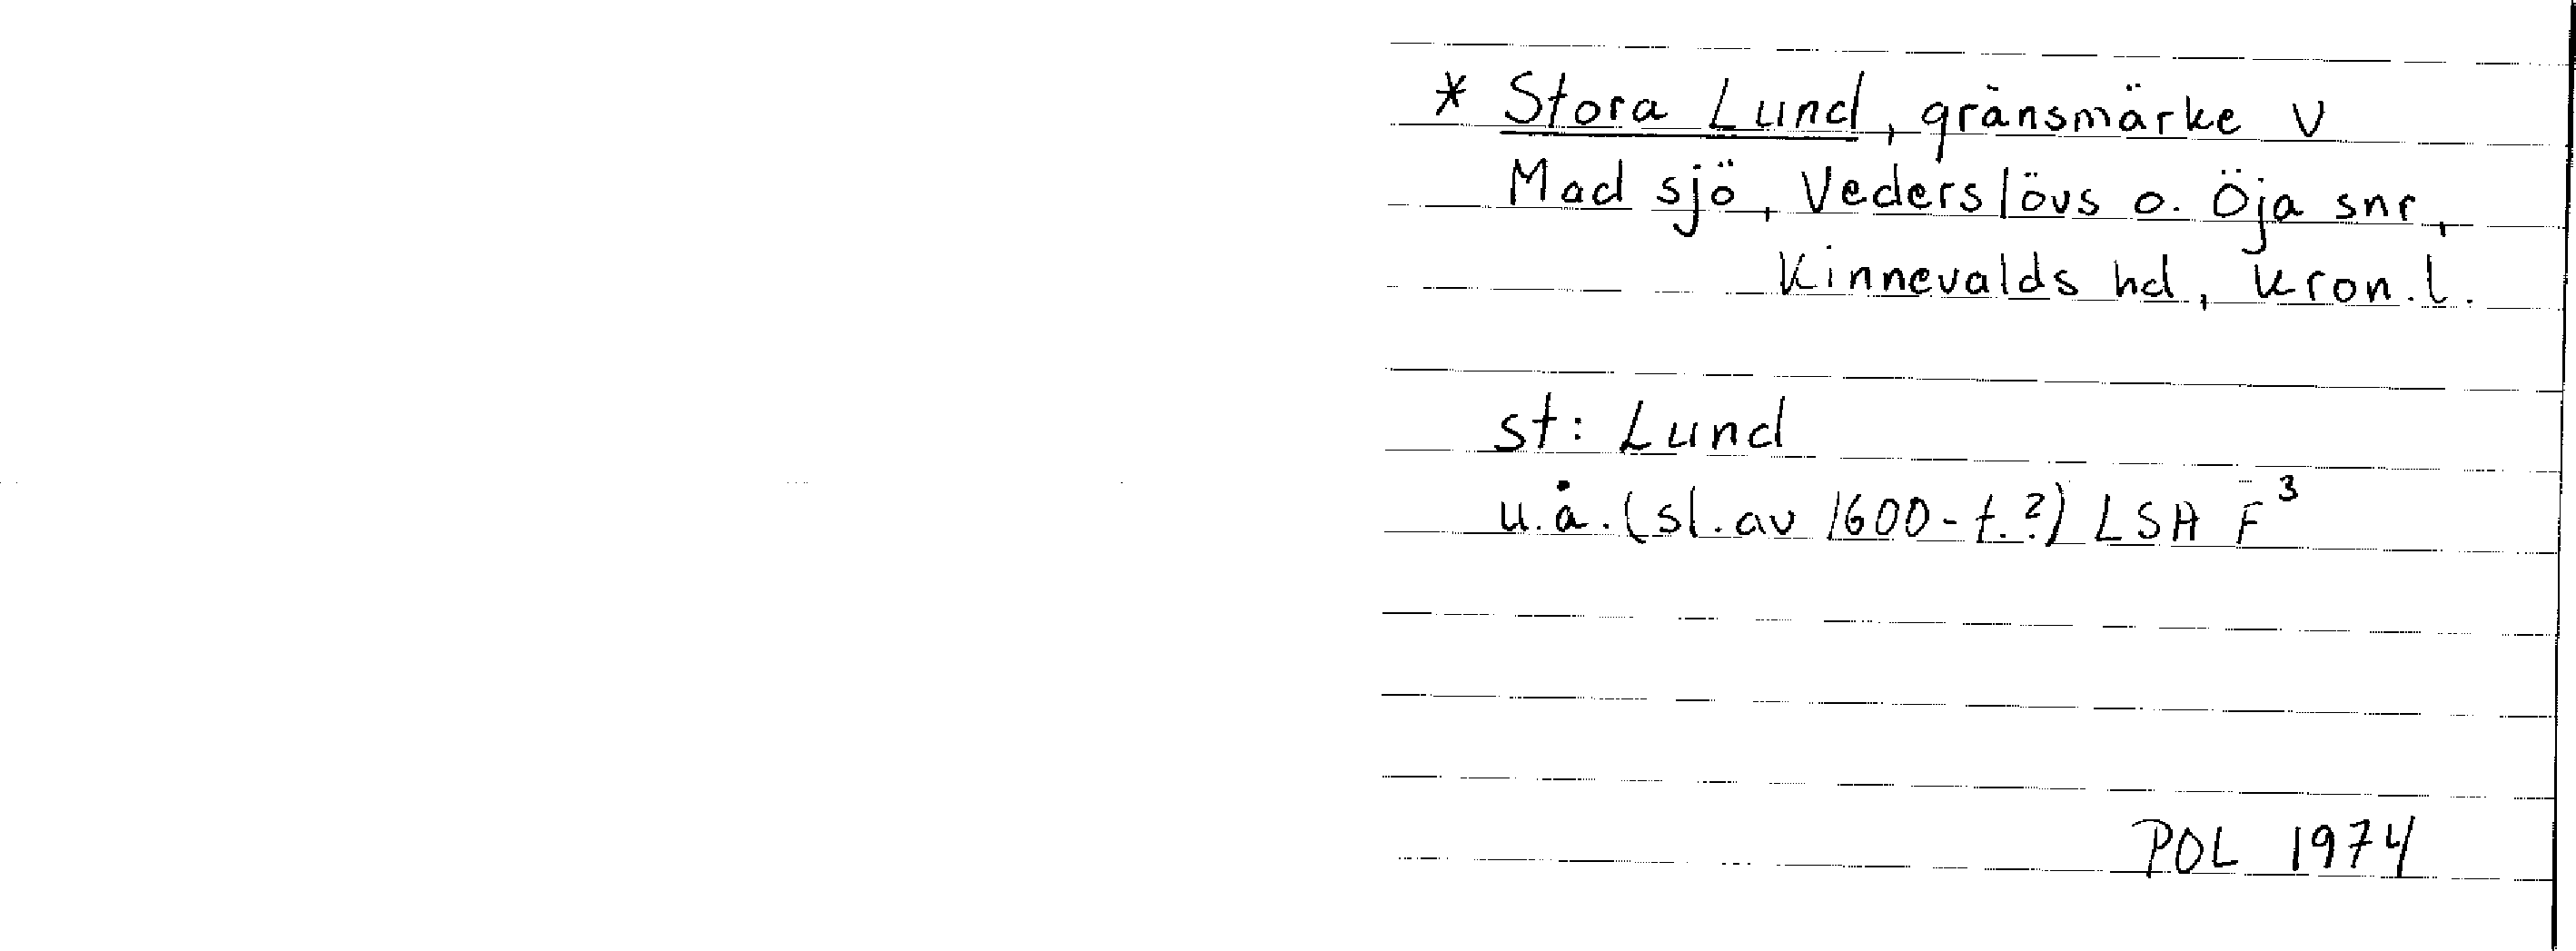 * Stora Lund, gränsmärke V
Mad sjö, Vederslövs o. Öja snr,
Kinnevalds hd, kron. l.
st: Lund
u.å. (sl. av 1600-t.?) LSA F³
POL 1974